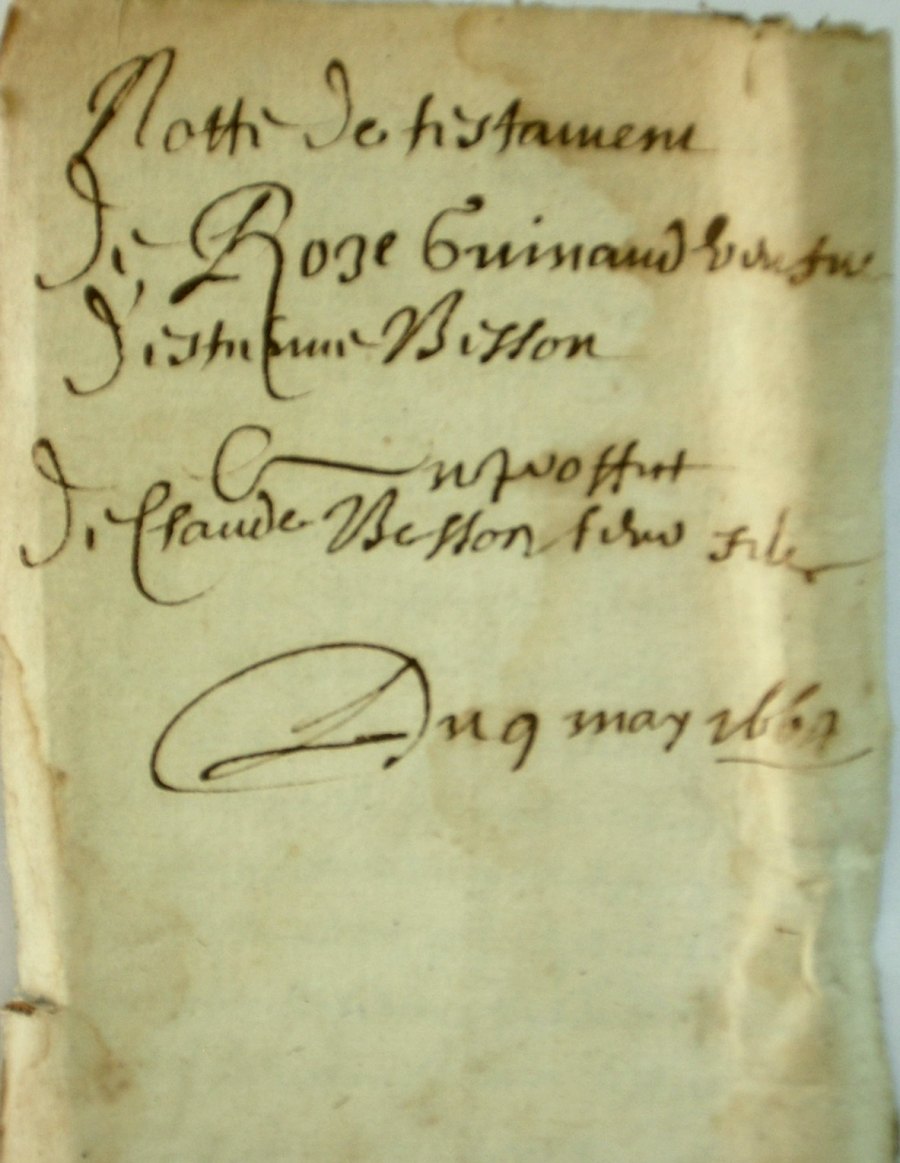 Notte de testament
de Roze Guinaud veufve
d'estienne Besson
En proffict
de Claude Besson filz
Du 9 may 1669